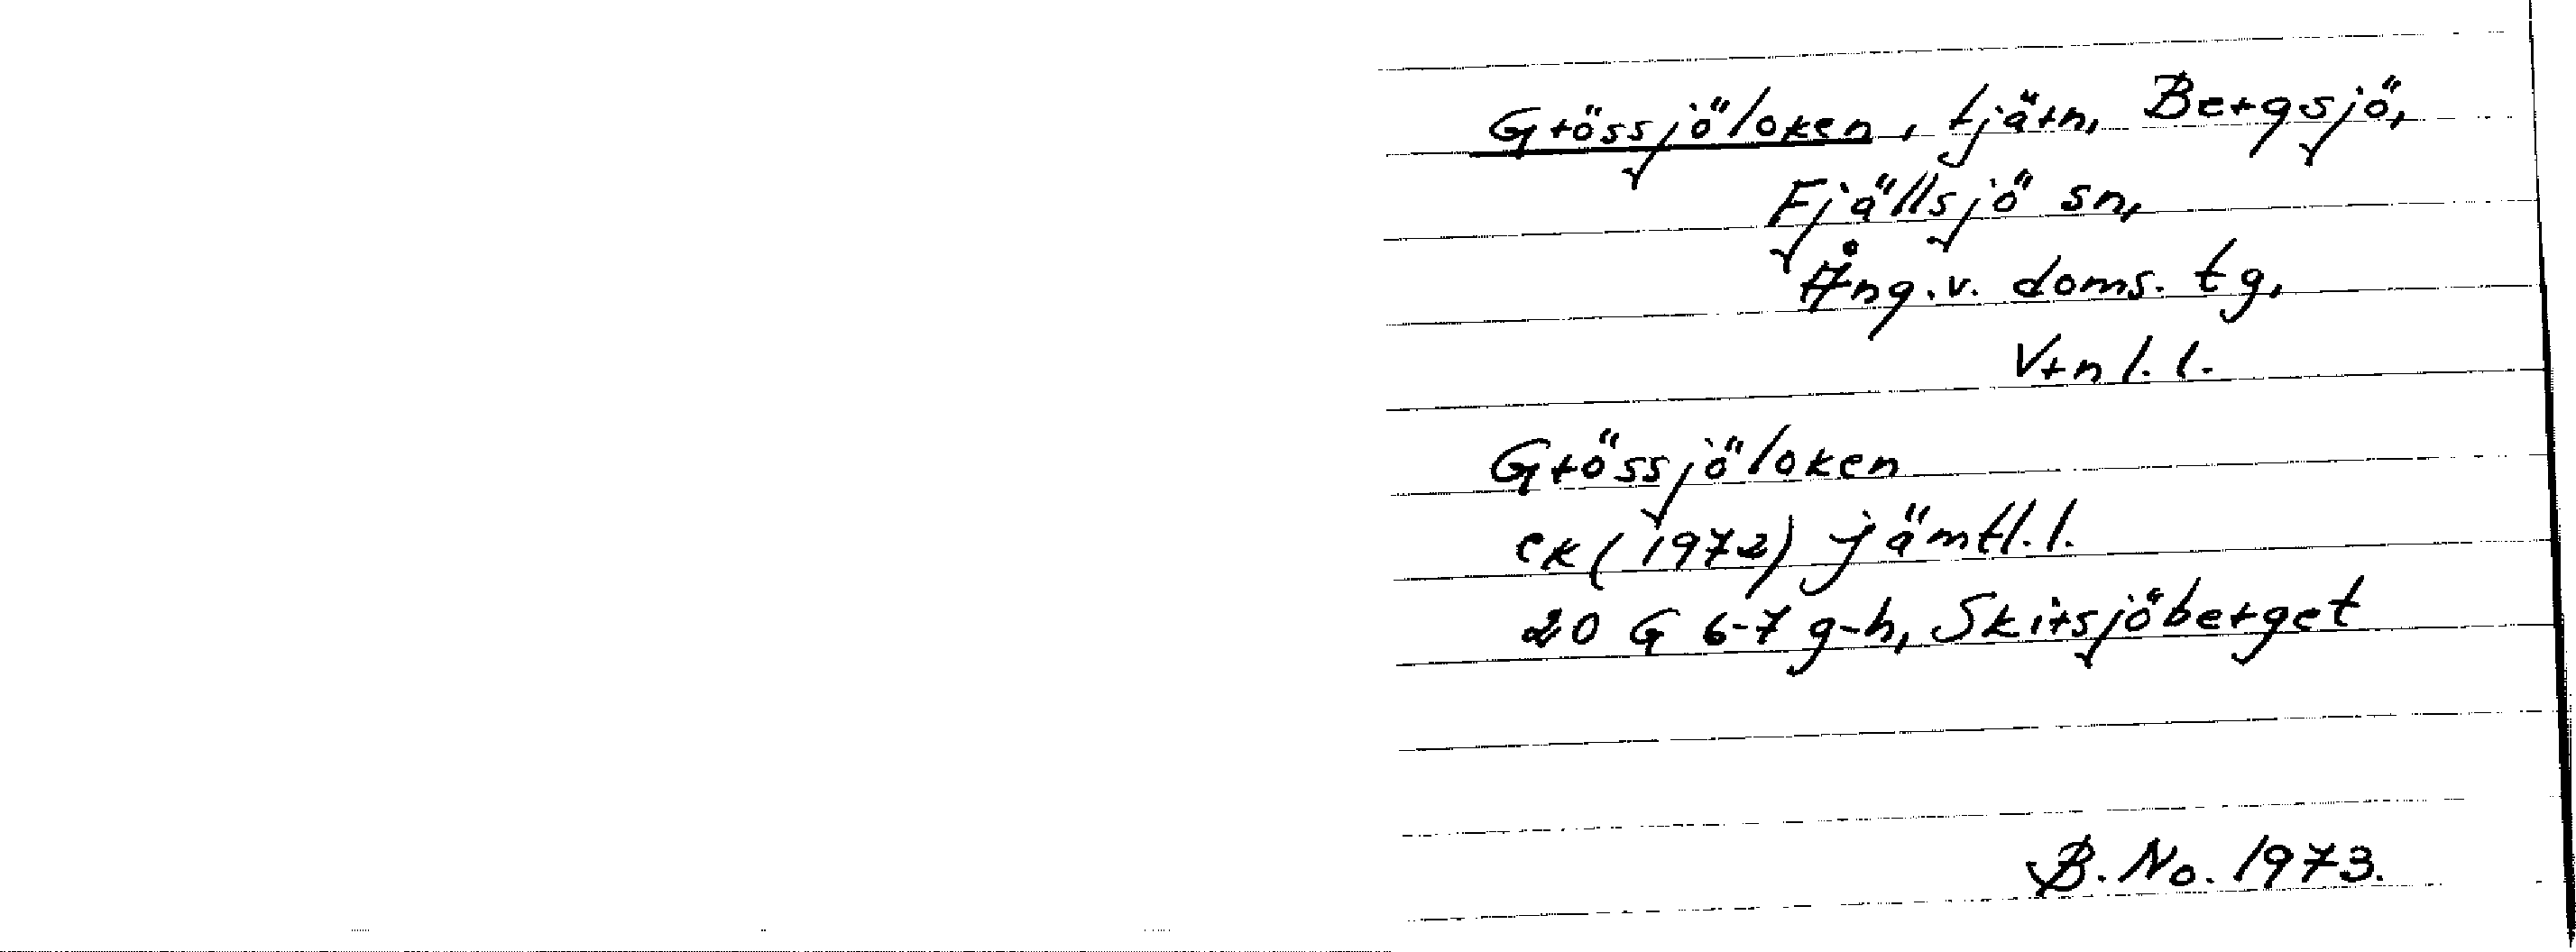 Grössjöloken, tjärn, Bergsjö,
Fjällsjö sn,
Ång.v. doms. tg,
Vrnl.l.
Grössjöloken
ek (1972) jämtl.l.
20 G 6-7 g-h, Skirsjöberget
B. No. 1973.